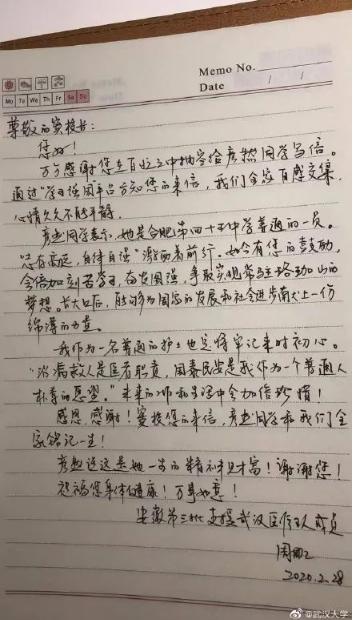 Memo No.
Date / /
Mo Tu We Th Fr Sa Su
尊敬的窦校长：
您好！
万分感谢您在百忙之中抽空给彦然同学写信。
通过“学习强国平台方知您的来信，我们全家百感交集，
心情久久不能平静。
彦然同学表示，她是合肥第四十五中学普通的一员。
自律自强”激励着前行。如今有您的鼓励，
会倍加刻苦学习，奋发图强，争取实现驾马珞珈山的
梦想。长大后，能够为国家的发展和社会进步献上一份
绵薄的力量。
我作为一名普通的护士也定将牢记来时初心。
“治病救人是医者职责，国泰民安是我作为一个普通人
朴素的愿望。”未来的工作和生活中会加倍珍惜！
感恩感谢！窦校长的来信，彦然同学和我们全
家铭记一生！
彦然说这是她一生的精神财富！谢谢您！
祝福您身体健康！万事如意！
安徽第三批支援武汉医疗队队员
周
2020.2.28
@武汉大学